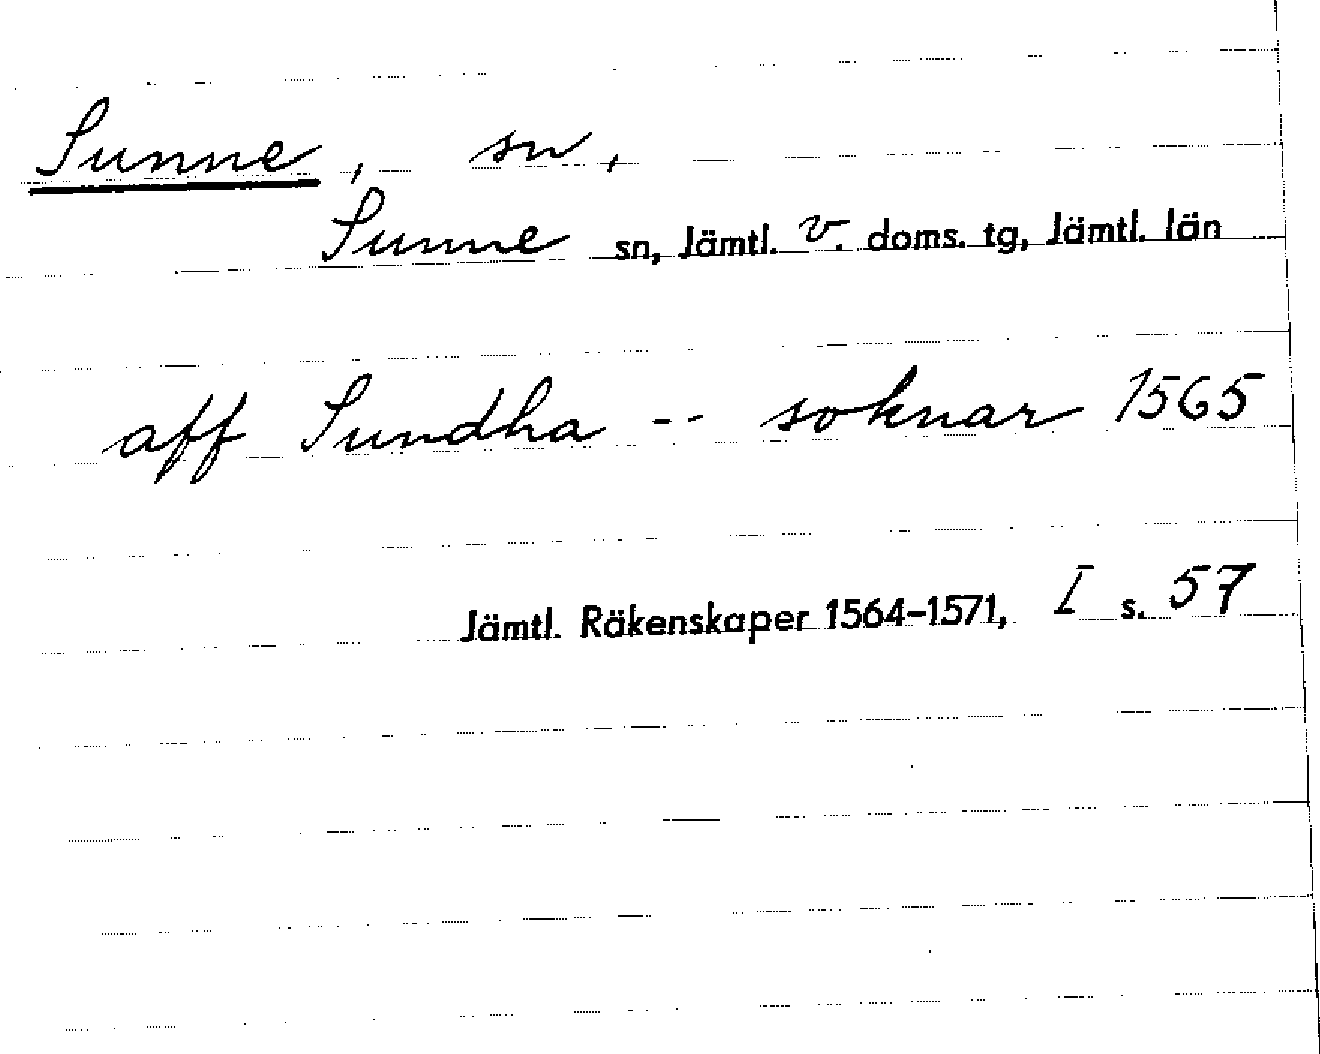 Sunne, sn,
Sunne sn, Jämtl. v. doms. tg, Jämtl. län
aff Sundha -- soknar 1565
Jämtl. Räkenskaper 1564-1571, I s. 57